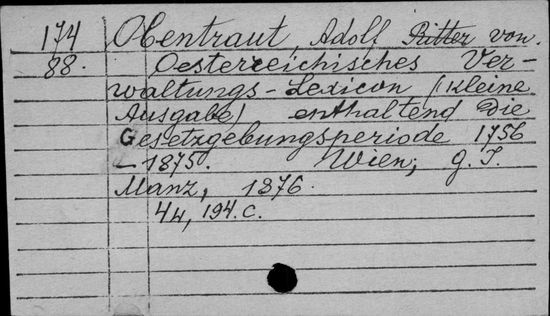 174 Obentraut, Adolf Ritter von.
88. Oesterreichisches Ver-
waltungs-Lexicon (Kleine
Ausgabe) enthaltend die
Gesetzgebungsperiode 1756
- 1875. Wien, G. J.
Manz, 1876.
44, 194. C.